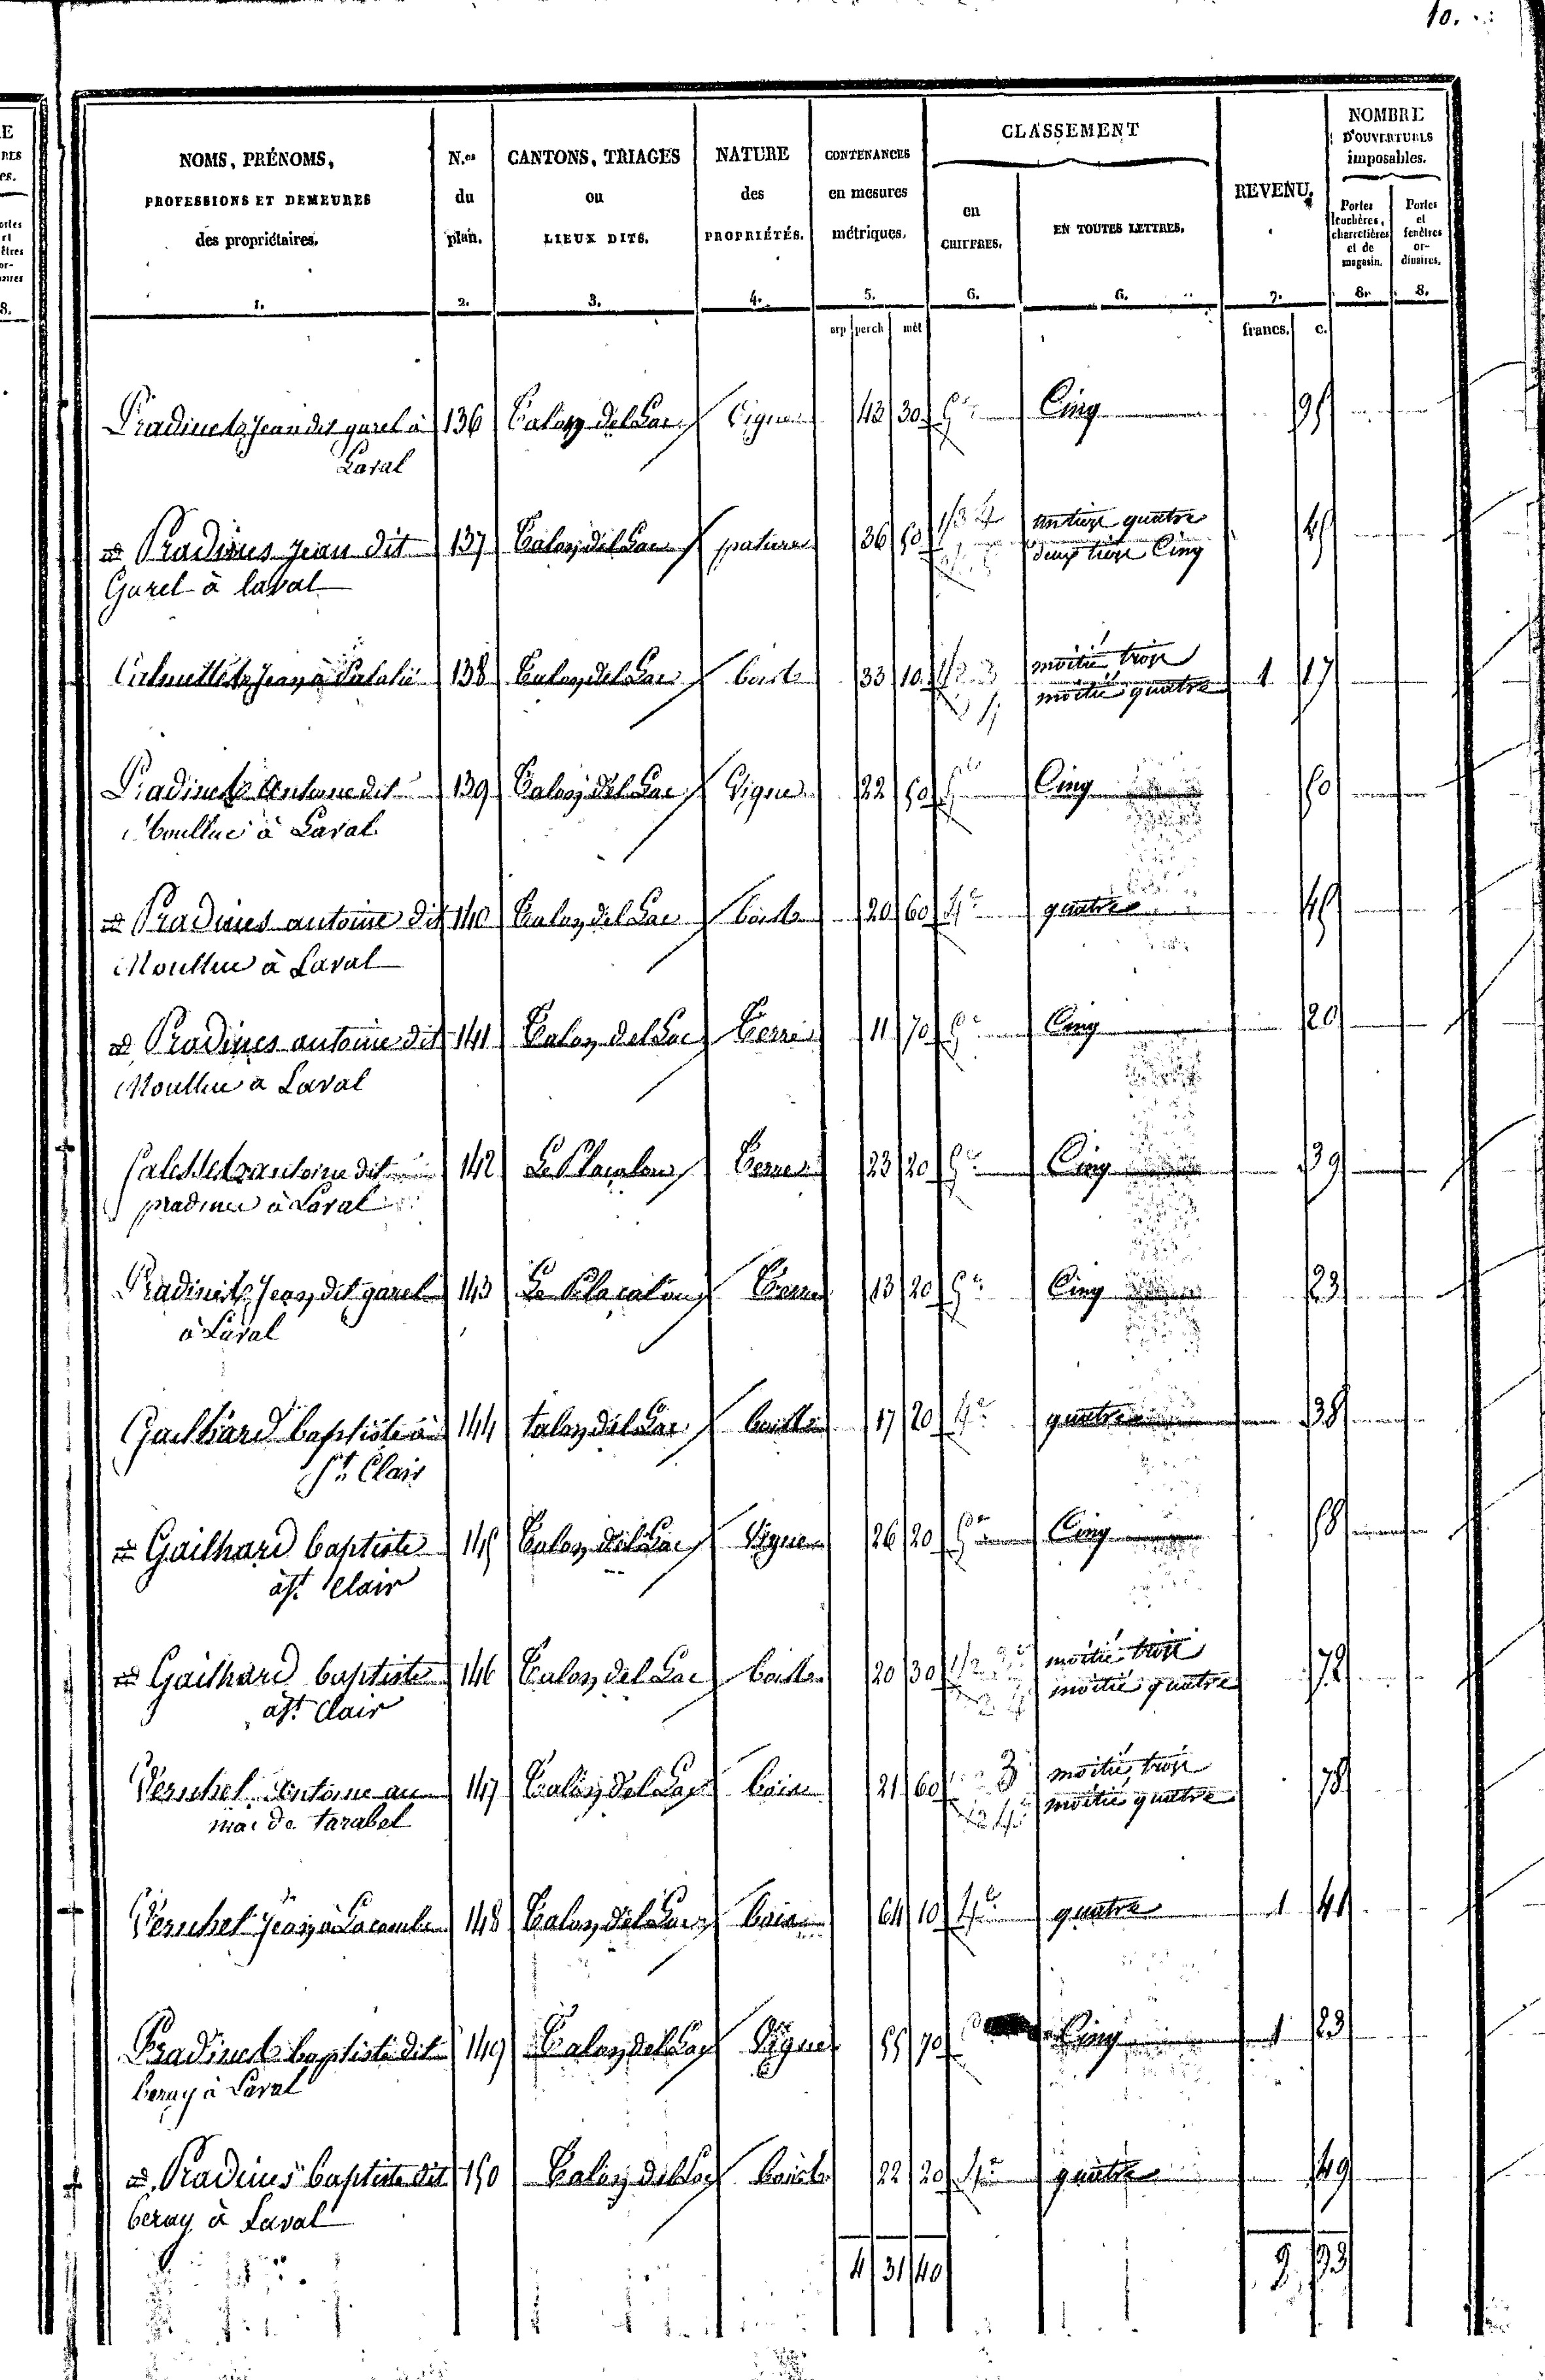 10.
NOMS, PRÉNOMS,
PROFESSIONS ET DEMEURES
des propriétaires.
1.
N.os
du
plan.
2.
CANTONS, TRIAGES
ou
LIEUX DITS.
3.
NATURE
des
PROPRIÉTÉS.
4.
CONTENANCES
en mesures
métriques.
5.
CLASSEMENT
en
CHIFFRES.
6.
EN TOUTES LETTRES.
6.
REVENU.
7.
NOMBRE
D'OUVERTURES
imposables.
Portes
cochères,
charretières
et de
magasin.
8.
Portes
et
fenêtres
or-
dinaires.
8.
arp perch mèt francs. c.
Pradines Jean dit garel à 136 Talon del Lac Vigne 43 30 5e Cinq 95
Laval
id. Pradines Jean dit 137 Talon del Lac pature 36 50 1/3 4 un tiers quatre 45
Garel à laval deux tiers Cinq
Jean à 138 Talon del Lac bois 33 10 1/2 3 moitié trois 1 17
moitié quatre
Pradines Antoine dit 139 Talon del Lac Vigne 22 50 5e Cinq 50
à Laval
id. Pradines antoine dit 140 Talon del Lac bois 20 60 4e quatre 45
à Laval
id. Pradines antoine dit 141 Talon del Lac Terre 11 70 5e Cinq 20
à Laval
antoine dit 142 Terre 23 20 5e Cinq 39
pradines à Laval
Pradines Jean dit garel 143 Terre 13 20 5e Cinq 23
à Laval
Gailhard baptiste à 144 talon del Lac bois 17 20 4e quatre 38
St. Clair
id. Gailhard baptiste 145 Talon del Lac Vigne 26 20 5e Cinq 58
à St. Clair
id. Gailhard baptiste 146 Talon del Lac bois 20 30 1/2 3e moitié trois 72
à St. Clair moitié quatre
Antoine au 147 Talon del Lac bois 21 60 3 moitié trois 78
mas de tarabel 1/2 4e moitié quatre
Jean à Lacombe 148 Talon del Lac bois 64 10 4e quatre 1 41
Pradines baptiste dit 149 Talon del Lac Vigne 55 70 Cinq 1 23
beray à Laval
id. Pradines baptiste dit 150 Talon del Lac bois 22 20 4e quatre 49
beray à Laval
4 31 40 9 93